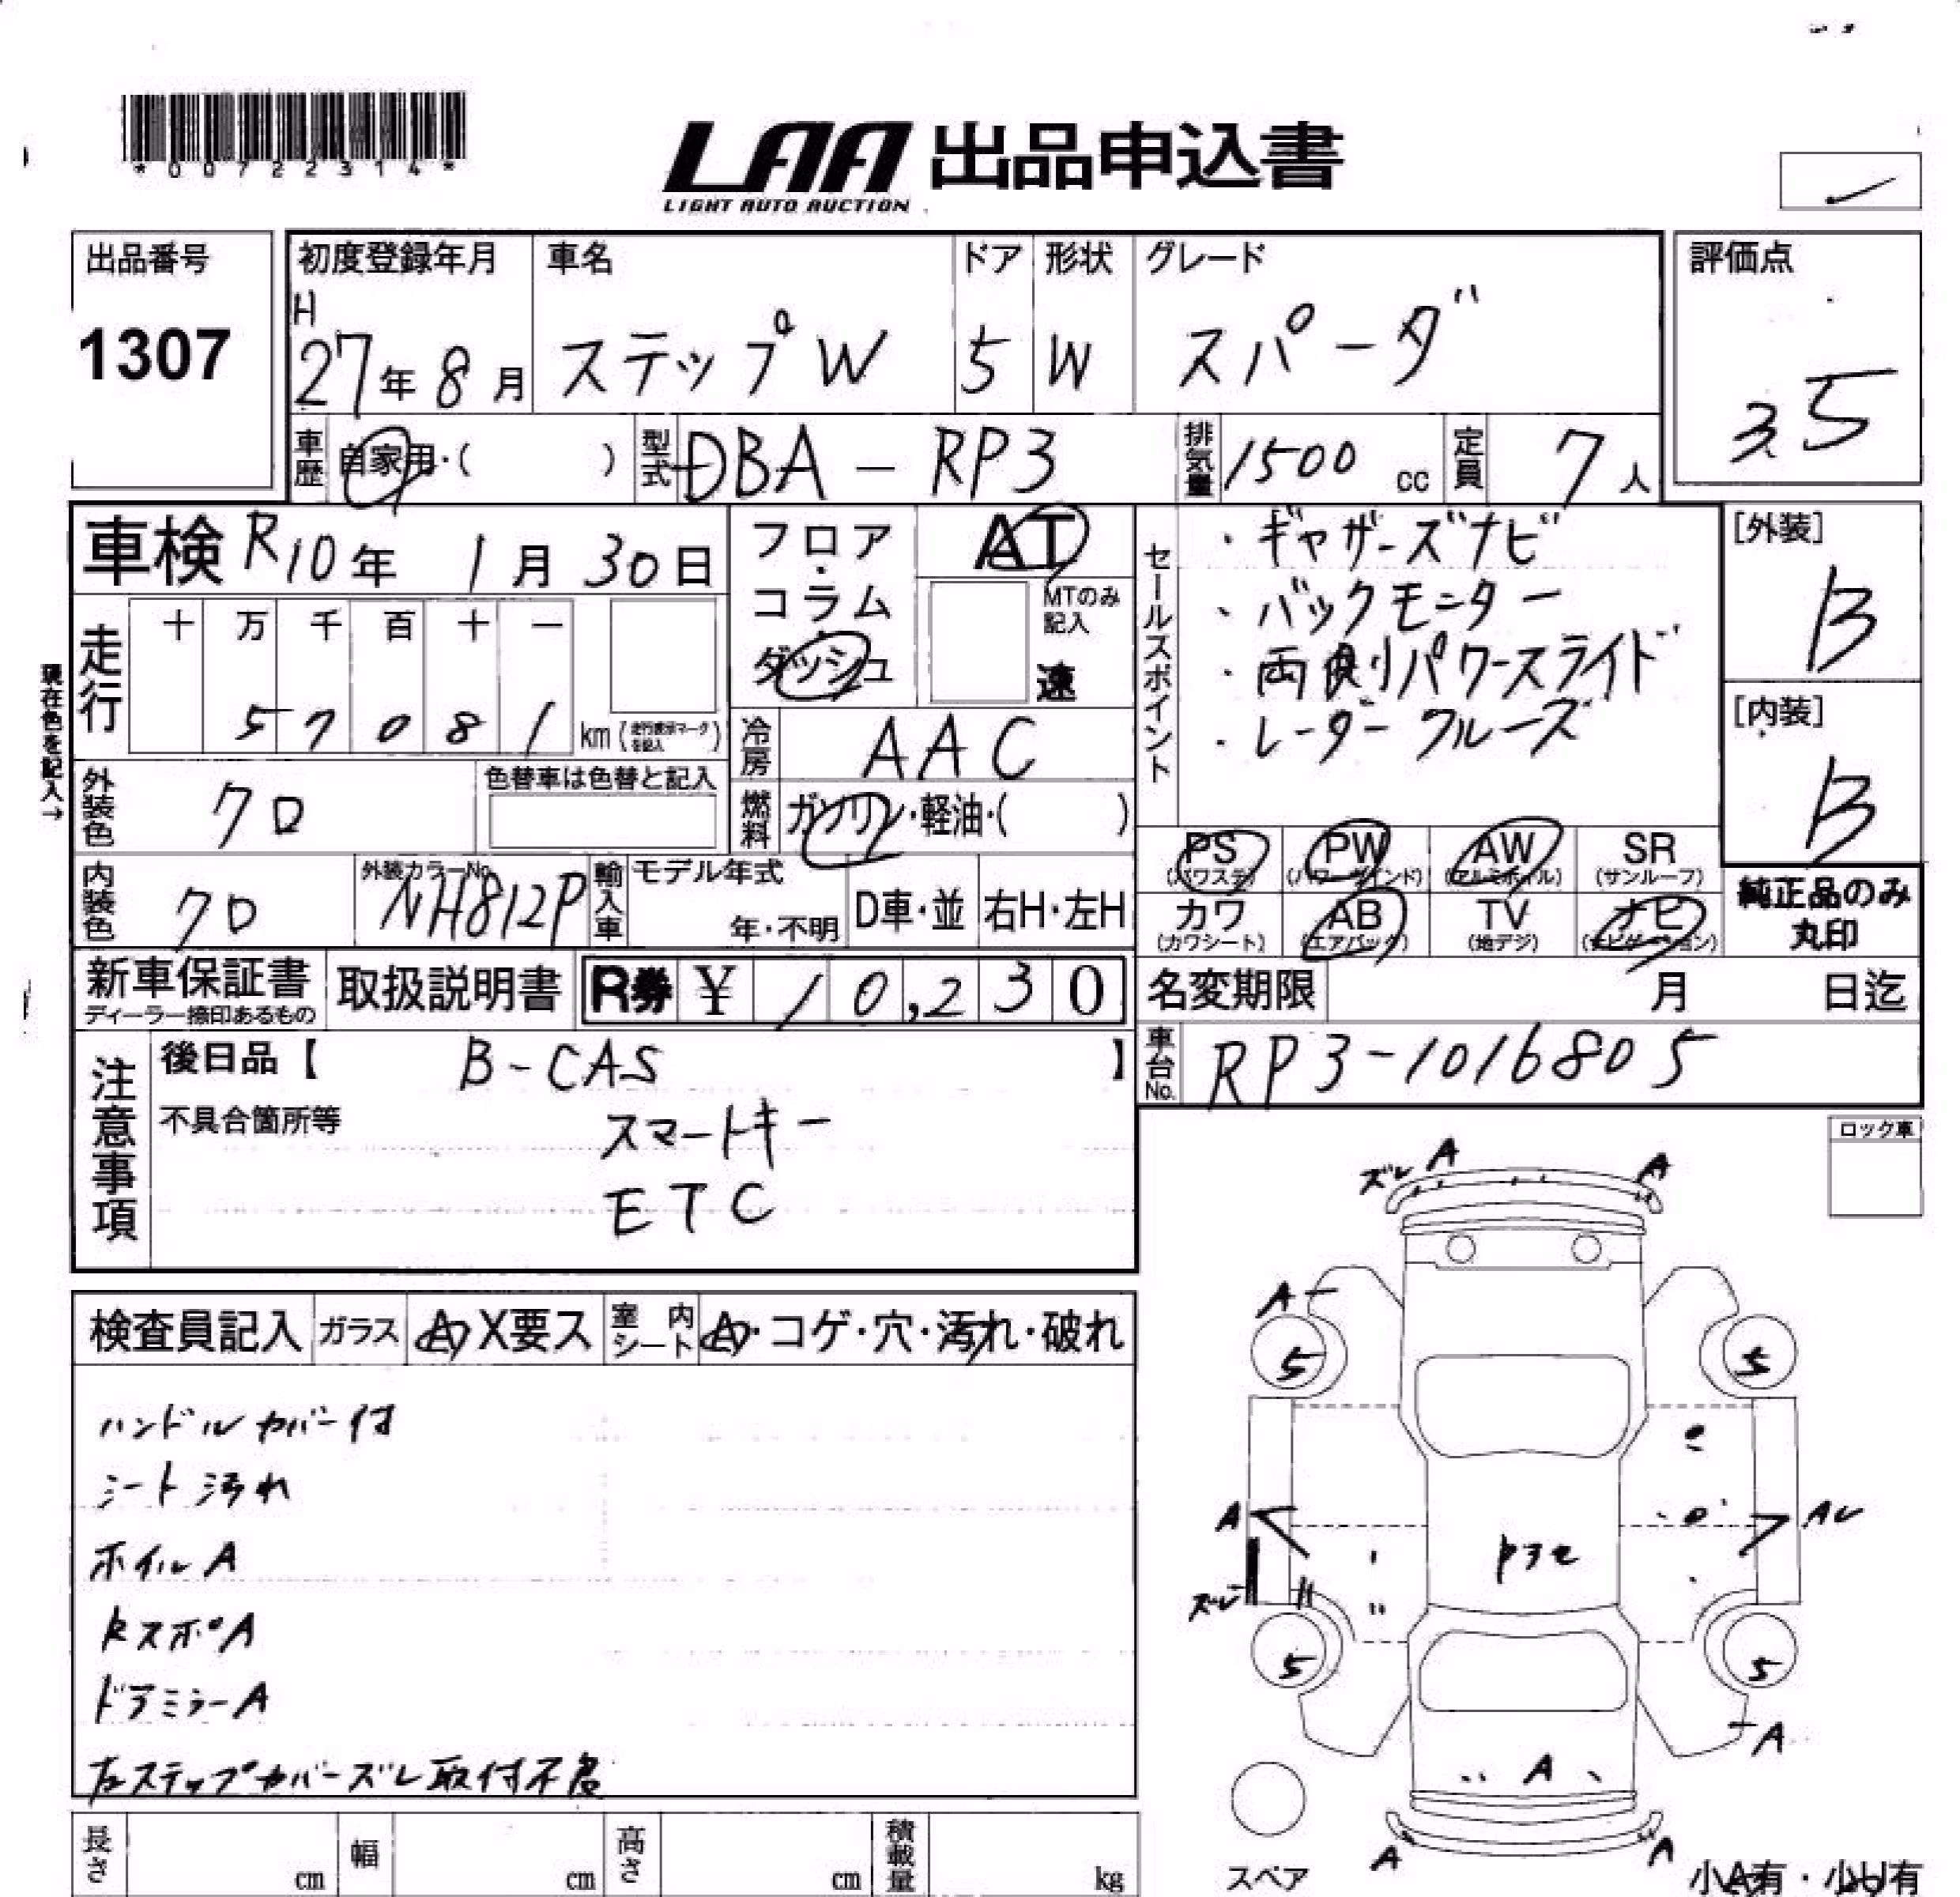 *00722314*
LAA 出品申込書
LIGHT AUTO AUCTION
出品番号
1307
初度登録年月
H
27年8月
車名
ステップW
ドア
5
形状
W
グレード
スパーダ
評価点
3.5
車歴
自家用・( )
型式
DBA-RP3
排気量
1500 cc
定員
7人
車検 R10年 1月 30日
走行
十 万 千 百 十 一
5 7 0 8 1 km (走行表示マークを記入)
現在色を記入→
外装色
クロ
色替車は色替と記入
内装色
クロ
外装カラーNo.
NH812P
輸入車
モデル年式
年・不明
D車・並
右H・左H
フロア・コラム・ダッシュ
AT
MTのみ記入
速
冷房
AAC
燃料
ガソリン・軽油・( )
セールスポイント
・ギャザーズナビ
・バックモニター
・両側パワースライド
・レーダークルーズ
[外装]
B
[内装]
B
PS (パワステ)
PW (パワーウインド)
AW (アルミホイル)
SR (サンルーフ)
カワ (カワシート)
AB (エアバック)
TV (地デジ)
ナビ (ナビゲーション)
純正品のみ丸印
新車保証書
ディーラー捺印あるもの
取扱説明書
R券 ¥ 10,230
名変期限 月 日迄
車台No.
RP3-1016805
注意事項
後日品【 B-CAS 】
不具合箇所等
スマートキー
ETC
ロック車
検査員記入
ガラス
A X要ス
室内シート
A・コゲ・穴・汚れ・破れ
ハンドルカバー付
シート汚れ
ホイルA
RスポA
ドアミラーA
左ステップカバーズレ取付不良
ズレ A
A
A
5
5
A
A
ズレ
5
5
A
A
A
A
スペア
小A有・小U有
長さ cm
幅 cm
高さ cm
積載量 kg